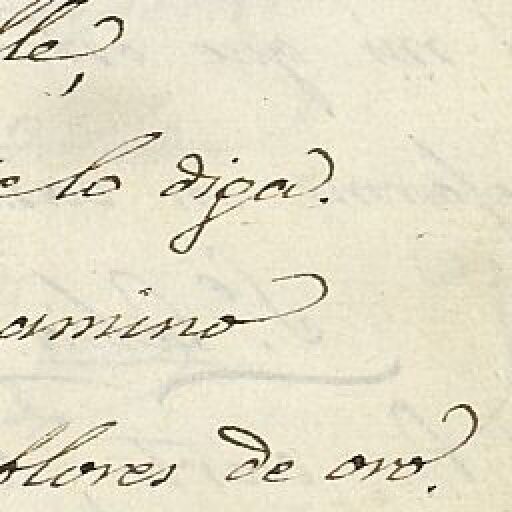 lle,
e lo diga.
amino
flores de oro.